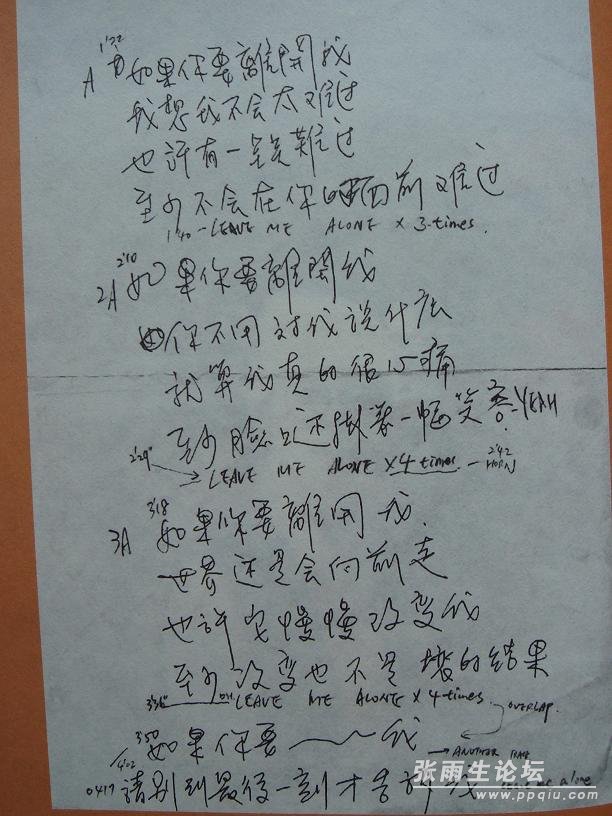 A 1'22" 如果你要離開我
我想我不会太难过
也許有一些難过
至少不会在你的面前难过
1'40 - LEAVE ME ALONE × 3-times.
2A 2'10 如果你要離開我
你不用对我說什麽
就算我真的很心痛
至少臉上还掛著一幅笑容-YEAH
2'29" LEAVE ME ALONE × 4 times - 2'42 HORN
3A 3'18 如果你要離開我.
世界还是会向前走
也許它慢慢改变我
至少改变也不是壞的结果
3'36" OH LEAVE ME ALONE × 4-times. OVERLAP.
3'50 如果你要～～我 → ANOTHER
4'02
0417 請别到最後一刻才告訴我 leave me alone
张雨生论坛
www.ppqiu.com